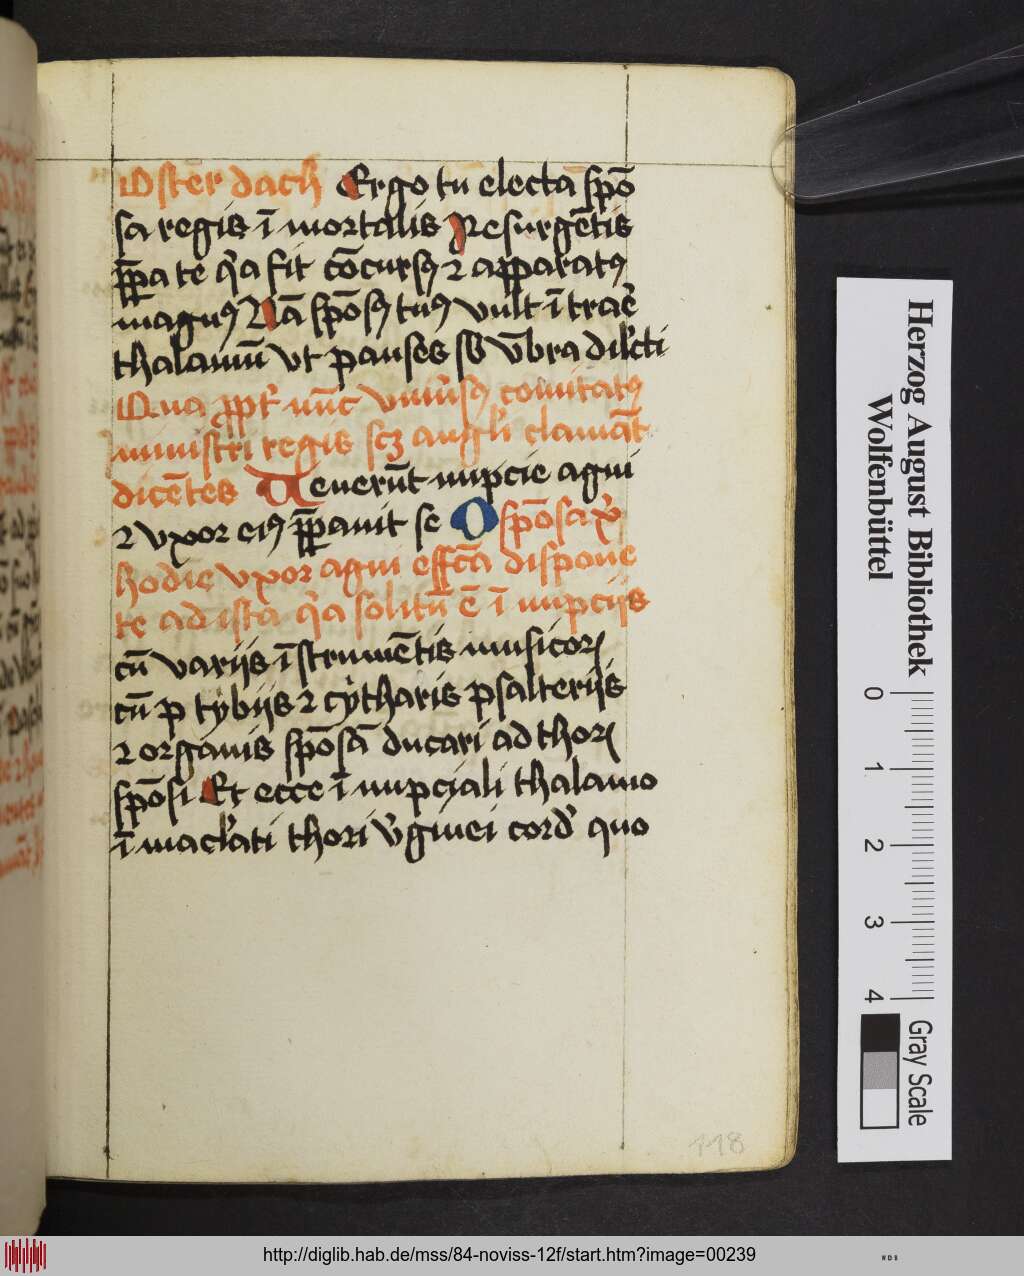 Oster dach Ergo tu electa spō
sa regis ī mortalis Resurgētis
ꝓpa te qͥa fit cōcursꝰ ⁊ apparatꝰ
magnꝰ Nā spōsꝰ tuꝰ vult ī trar̄e
thalamū vt pauses sb̄ vm̄bra dilc̄ti
Qua ꝓpt̾ nūc vniūsꝰ comitatꝰ
ministri regis scꝫ angl̓i clamāt
dicētes Venerūt nupcie agni
⁊ vxor eiꝰ p̄pauit se O spōsa xͥ
hodie vxor agni eff̄cā dispone
te ad ista qͥa solitū ē ī nupcijs
cū varijs īstrumētis musicoꝝ
cū p tybijs ⁊ cytharis psalterijs
⁊ organis spōsā ducari ad thoꝝ
spōsi Et ecce ī nupciali thalamo
ī macl̓ati thori v̾ginei cord̓ quo
118
Herzog August Bibliothek
Wolfenbüttel
0 1 2 3 4
Gray Scale
http://diglib.hab.de/mss/84-noviss-12f/start.htm?image=00239